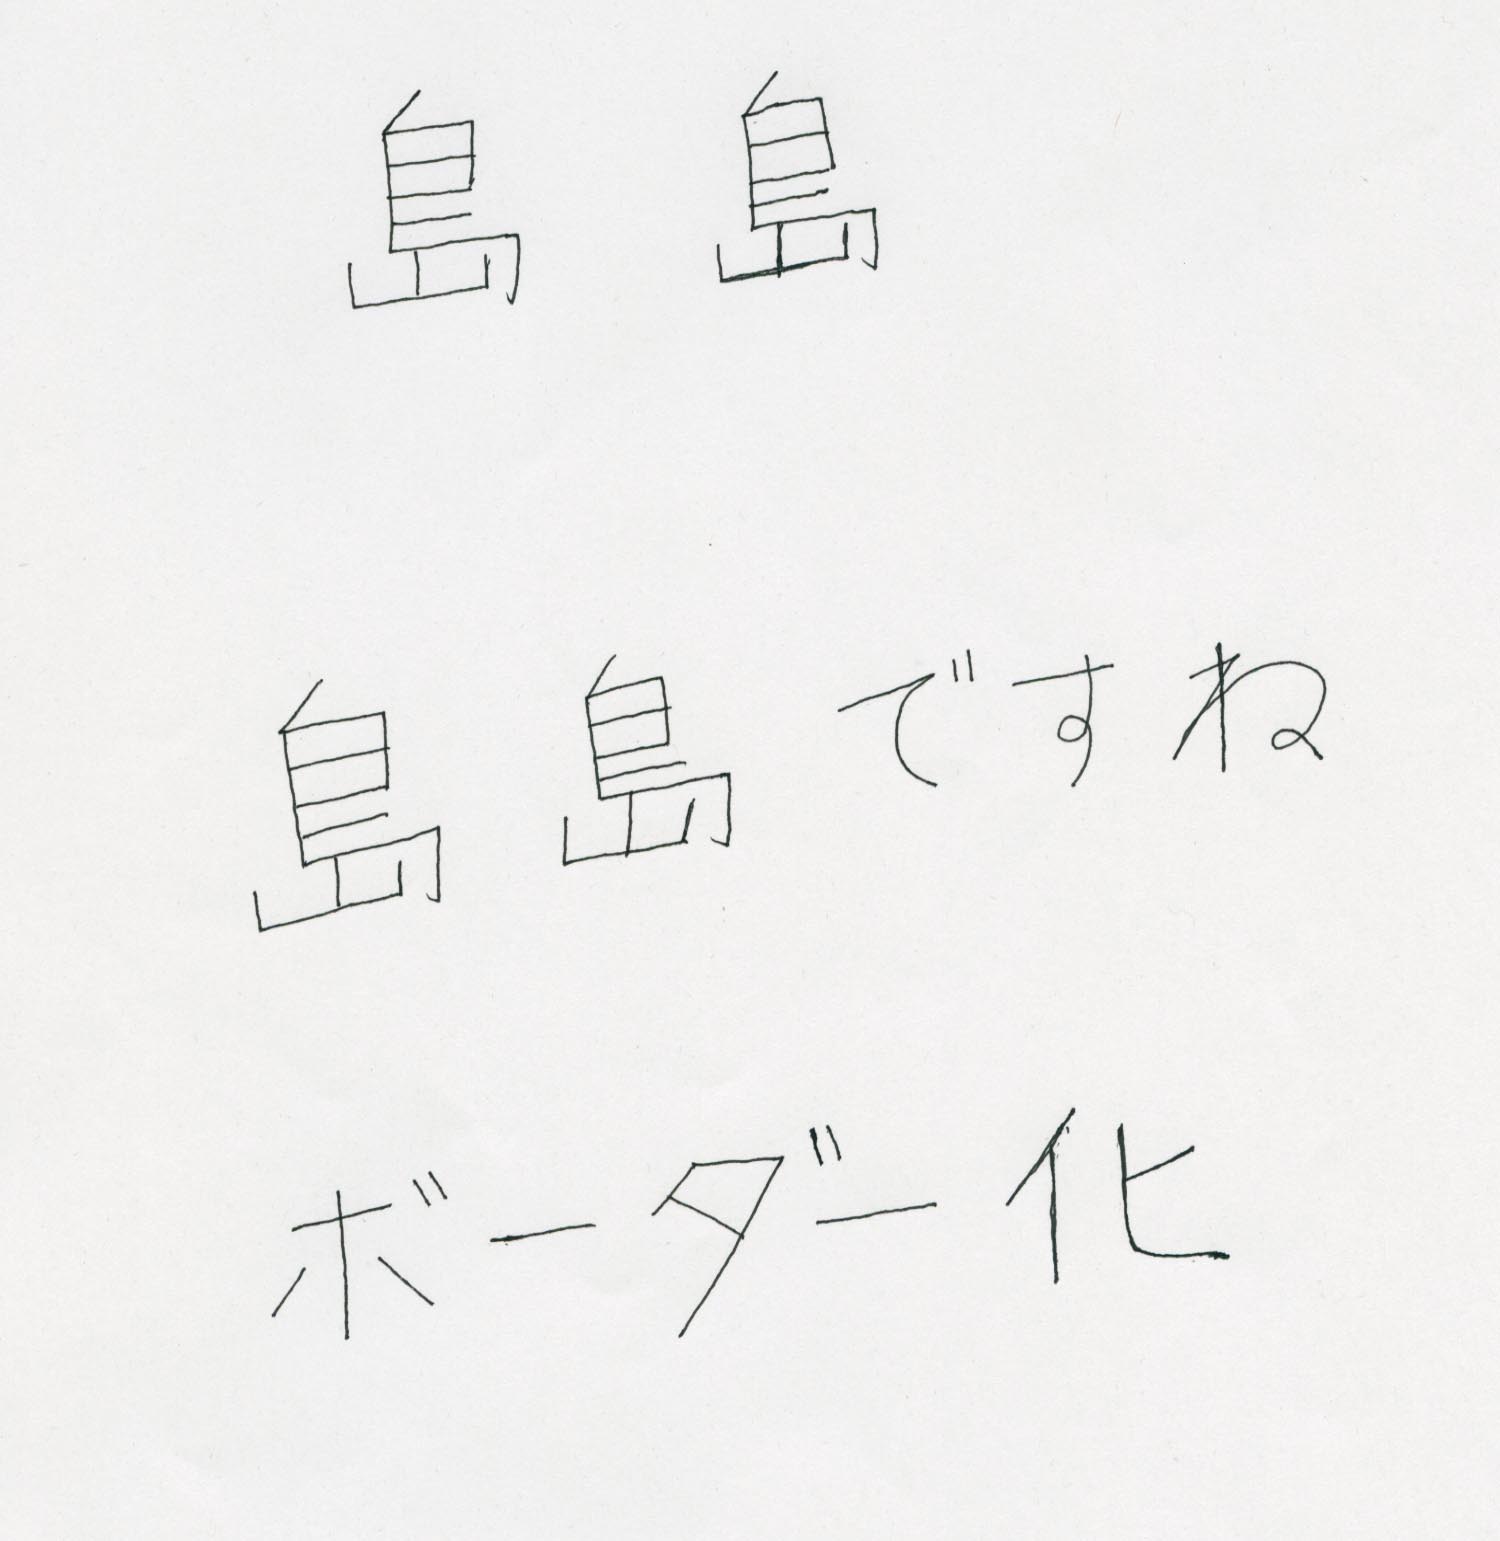 島島
島島ですね
ボーダー化